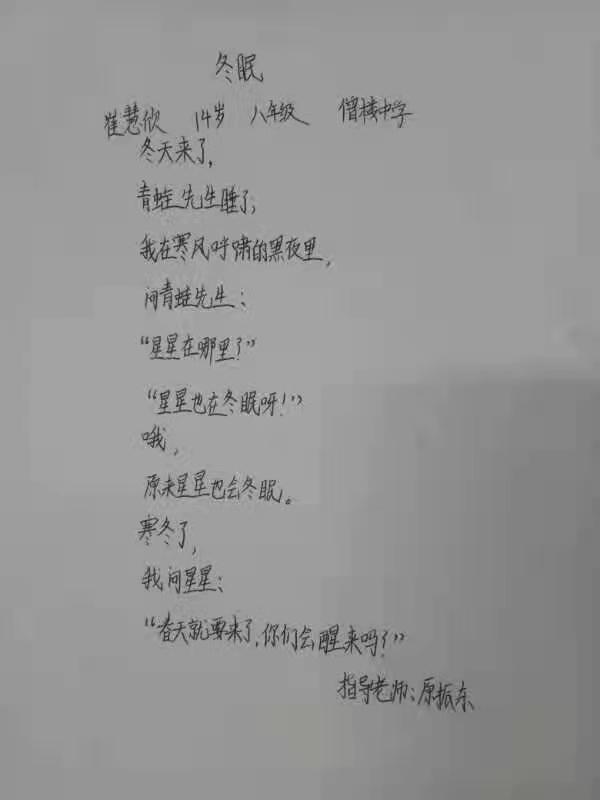 冬眠
崔慧欣 14岁 八年级 僧楼中学
冬天来了,
青蛙先生睡了,
我在寒风呼啸的黑夜里,
问青蛙先生:
“星星在哪里?”
“星星也在冬眠呀!”
哦,
原来星星也会冬眠。
寒冬了,
我问星星:
“春天就要来了,你们会醒来吗?”
指导老师:原振东